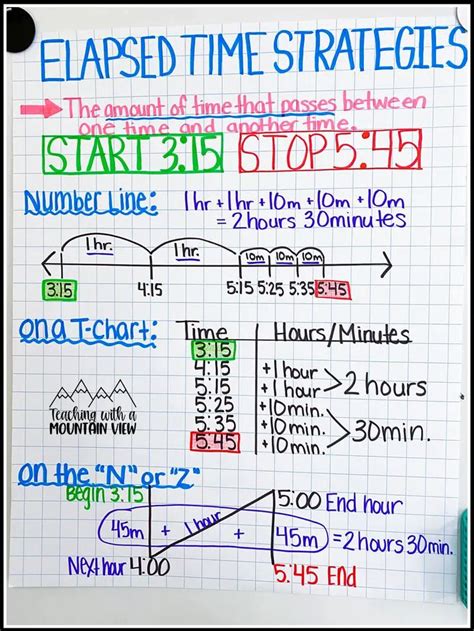 ELAPSED TIME STRATEGIES
The amount of time that passes between
one time and another time.
START 3:15 STOP 5:45
Number Line: 1hr + 1hr + 10m + 10m + 10m
= 2hours 30minutes
1hr. 1hr. 10m 10m 10m
3:15 4:15 5:15 5:25 5:35 5:45
on a T-Chart: Time Hours/Minutes
3:15
4:15 +1 hour
5:15 +1 hour > 2 hours
5:25 +10min.
5:35 +10min. > 30min.
5:45 +10min.
Teaching with a
MOUNTAIN VIEW
on the "N" or "Z"
Begin 3:15 5:00 End hour
45m + 1hour + 45m = 2hours 30min.
Next hour 4:00
5:45 End